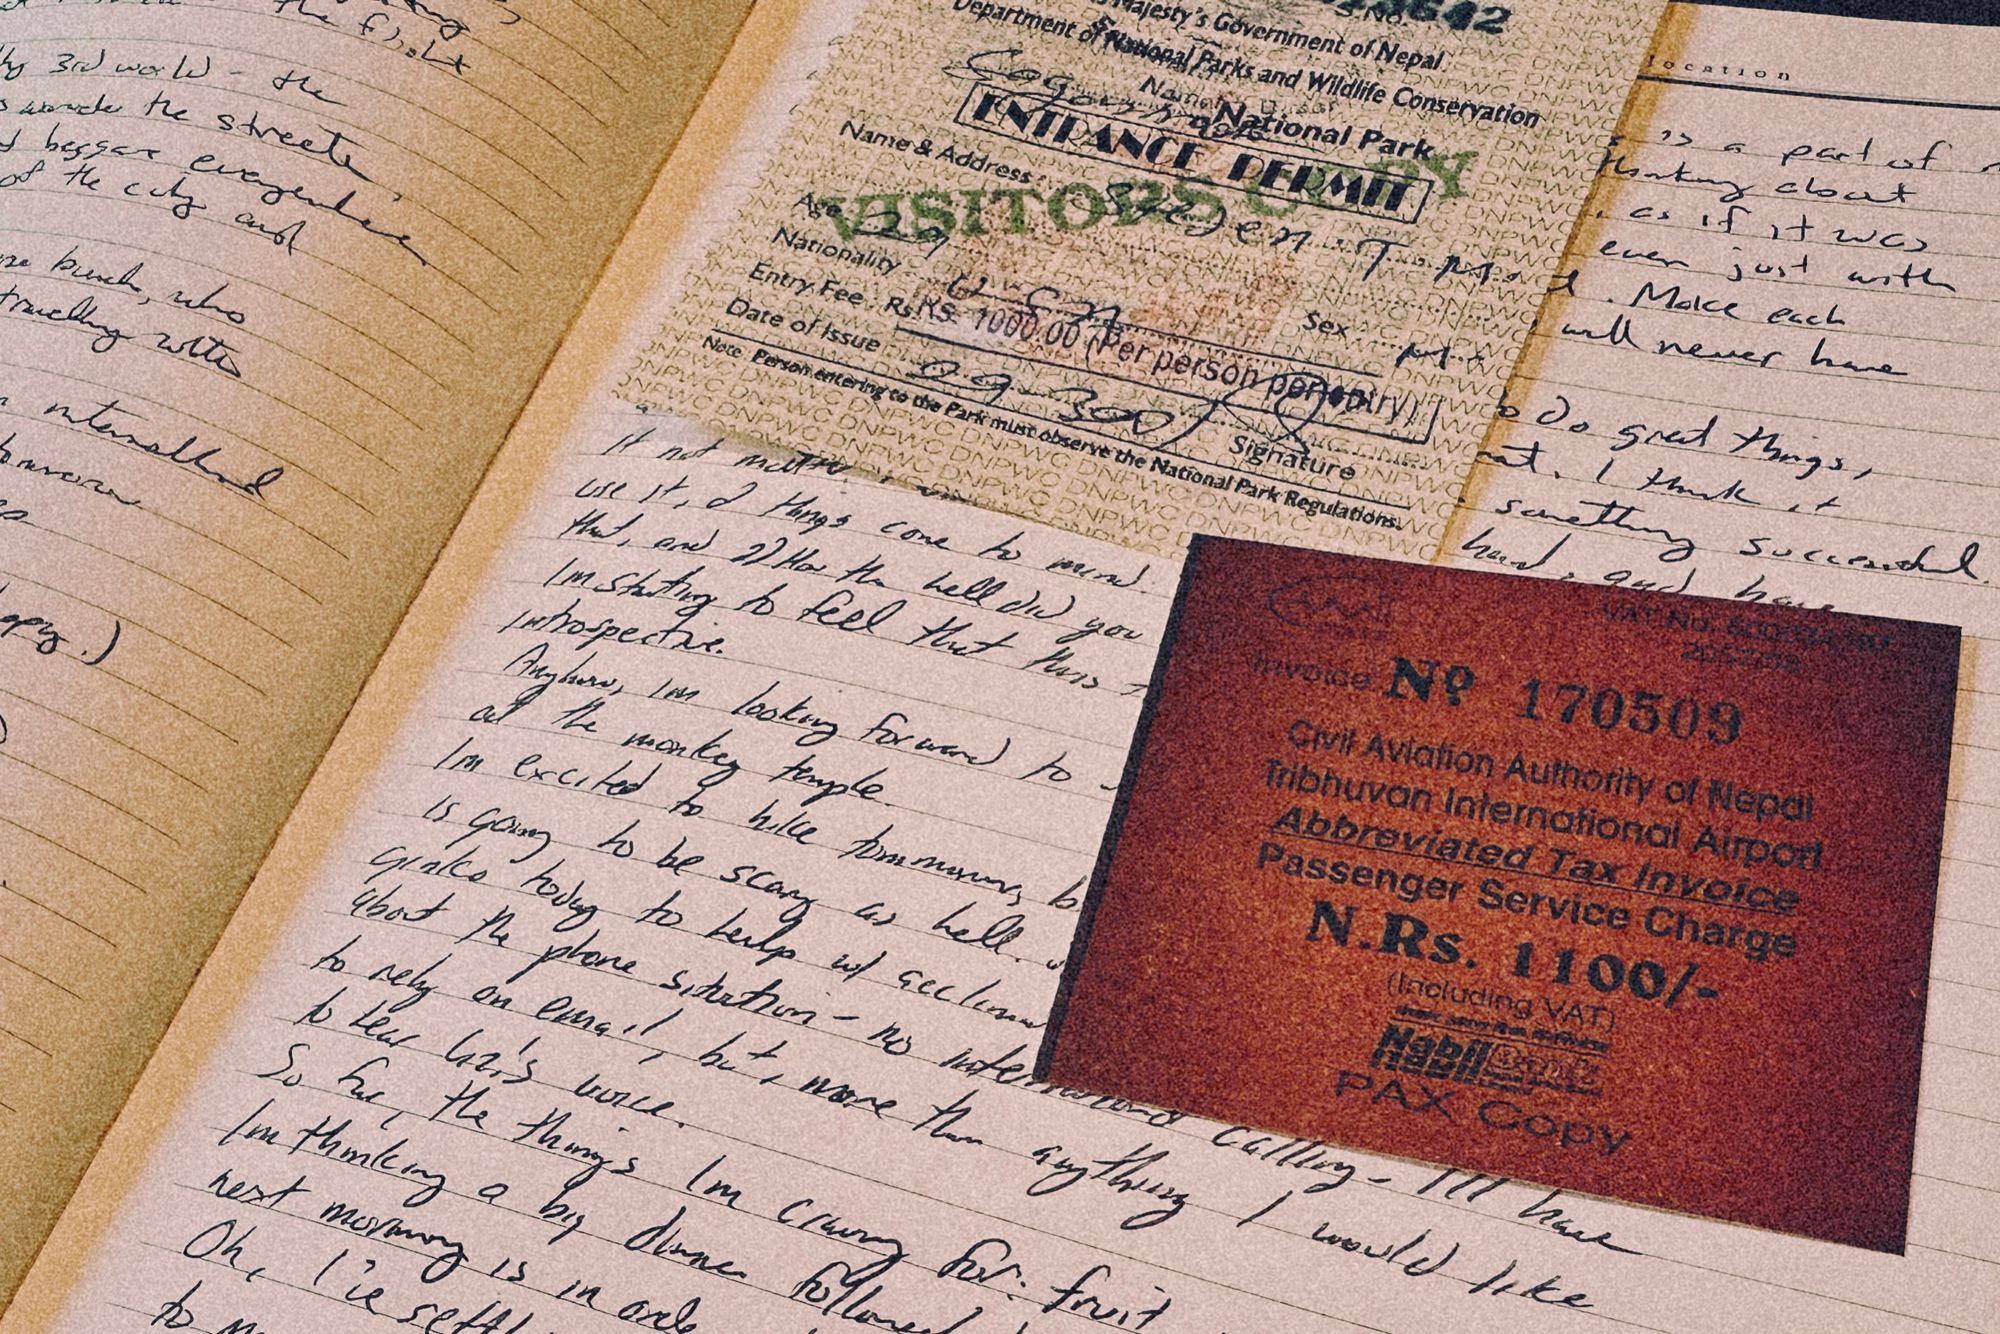 the flight
3rd world - the
the streets,
beggar everywhere
of the city and
bunch, who
travelling with
3642
S.No.
Majesty's Government of Nepal
Department of National Parks and Wildlife Conservation
National Park
ENTRANCE PERMIT
VISITOR'S COPY
Name & Address
Age 29
Nationality
Sex M
Entry Fee : Rs. RS. 1000.00 (Per person per entry)
Date of Issue
Signature
Note: Person entering to the Park must observe the National Park Regulations.
location
is a part of
thinking about
as if it was
even just with
. Make each
will never have
do great things,
. I think it
something successful.
hand, and have
it not matter.
use it, 2 things come to mind
that, and 2) How the hell did you
I'm starting to feel that this
introspective.
Anyhow, I'm looking forward to
at the monkey temple.
I'm excited to hike tommorrow, b
is going to be scary as hell.
ginko today to help w/ acclim
about the phone situation - no international calling - I'll have
to rely on email, but, more than anything I would like
to hear Liz's voice.
So far, the things I'm craving for: fruit
I'm thinking a big dinner followed
next morning is in orde
Oh, I've settl
to m
VAT No.
2057/58
Invoice No 170509
Civil Aviation Authority of Nepal
Tribhuvan International Airport
Abbreviated Tax Invoice
Passenger Service Charge
N.Rs. 1100/-
(Including VAT)
Nabil Bank
PAX Copy